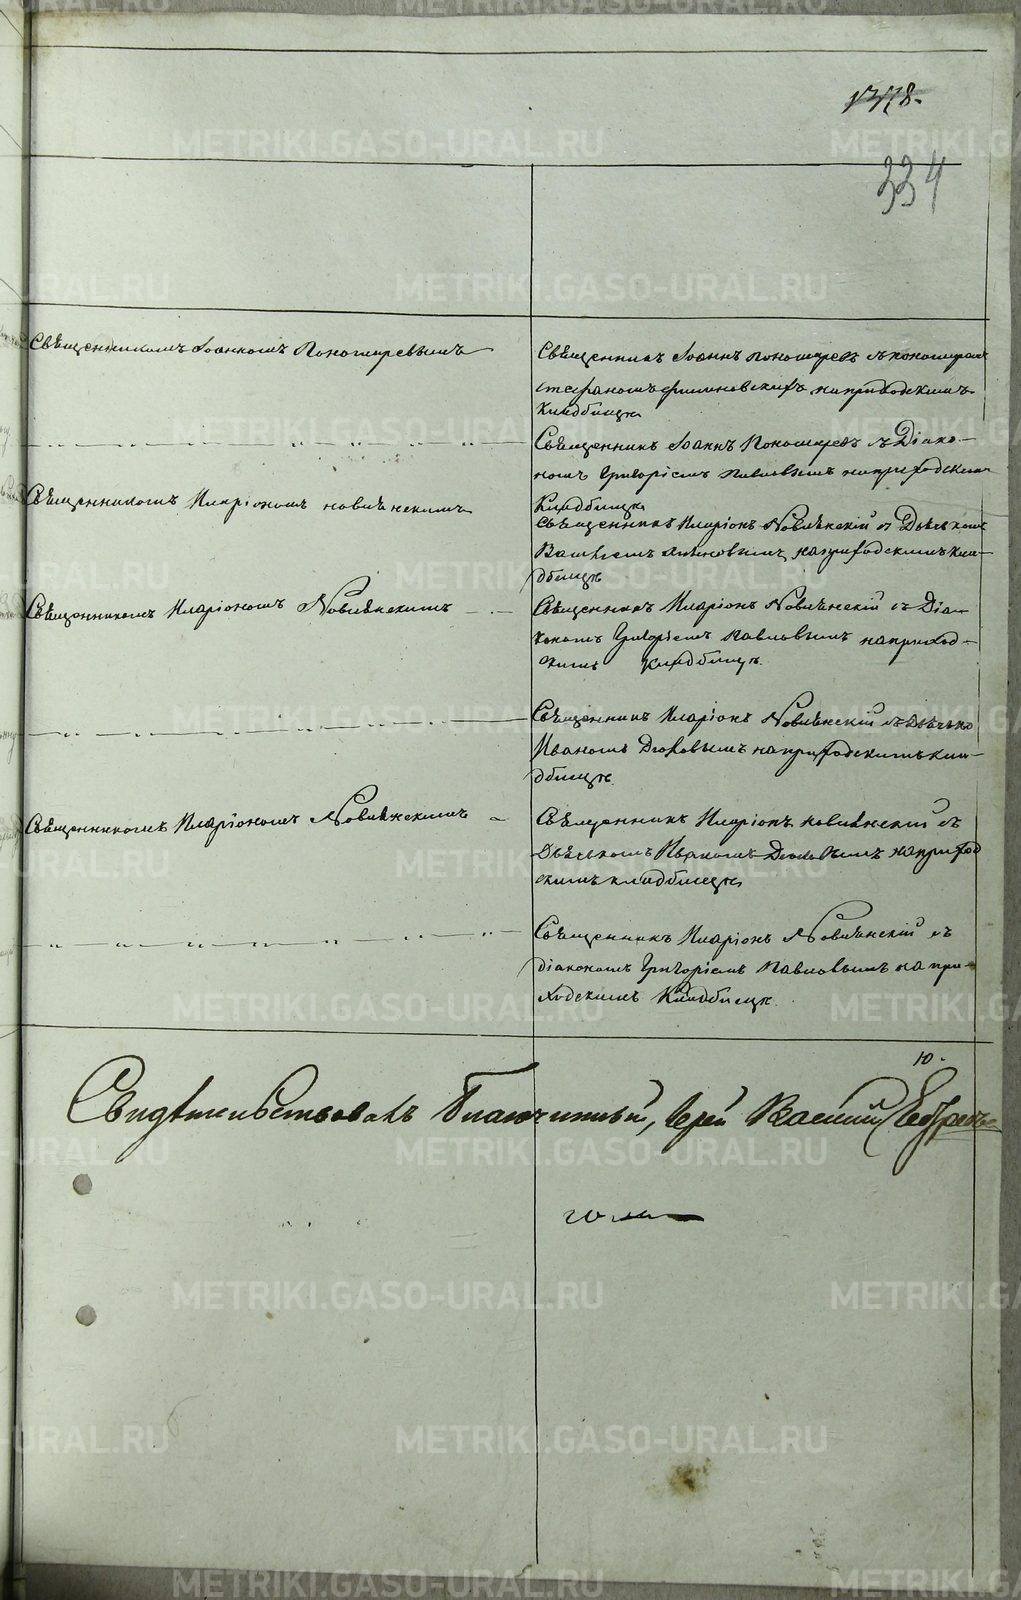 1378.
334
Священникомъ Іоанномъ Пономаревымъ
Священникъ Іоаннъ Пономаревъ съ пономаремъ
Стефаномъ на приходскимъ
кладбищѣ
Священникъ Іоаннъ Пономаревъ съ Діако-
номъ Григоріемъ Павловымъ на приходскимъ
кладбищѣ
Священникомъ Иларіономъ Новлянскимъ
Священникъ Иларіонъ Новлянскій съ Дьячкомъ
на приходскимъ кла-
дбищѣ
Священникомъ Иларіономъ Новлянскимъ
Священникъ Иларіонъ Новлянскій съ Діа-
кономъ Григоріемъ Павловымъ на приход-
скимъ кладбищѣ.
Священникъ Иларіонъ Новлянскій съ Дьячко
Иваномъ на приходскимъ кла-
дбищѣ.
Священникомъ Иларіономъ Новлянскимъ
Священникъ Иларіонъ Новлянскій съ
Дьячкомъ Иваномъ на приход
скимъ кладбищѣ
Священникъ Иларіонъ Новлянскій съ
діакономъ Григоріемъ Павловымъ на при-
ходскимъ Кладбищѣ.
Ю.
Свидѣтельствовалъ Благочинный, Іерей
METRIKI.GASO-URAL.RU